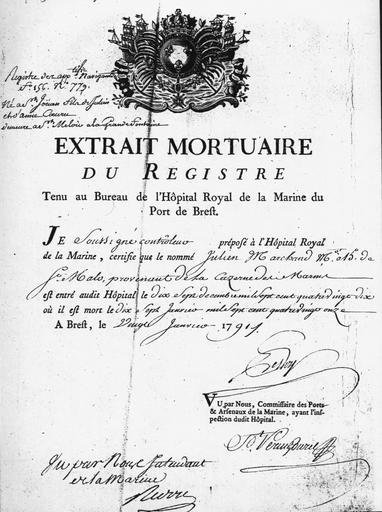 Registre des
f.° 156. N.° 779.
Né a St. Joüan fils de Julien
et d'anne Coeuru
demeure a St. Meloir a la Grande fontaine
EXTRAIT MORTUAIRE
DU REGISTRE
Tenu au Bureau de l'Hôpital Royal de la Marine du
Port de Breſt.
JE Soussigné controleur préposé à l'Hôpital Royal
de la Marine, certifie que le nommé Julien Marchand de
St. Malo, provenant de la Cazerne des Marins
est entré audit Hôpital le dix Sept decembre mil Sept cent quatre vingt dix
où il est mort le dix Sept Janvier mil Sept cent quatre vingt onze
A Breſt, le Vingt Janvier 1791.
VU par Nous, Commiſſaire des Ports
& Arſenaux de la Marine, ayant l'inſ-
pection dudit Hôpital.
Vu par Nous Intendant
de la Marine